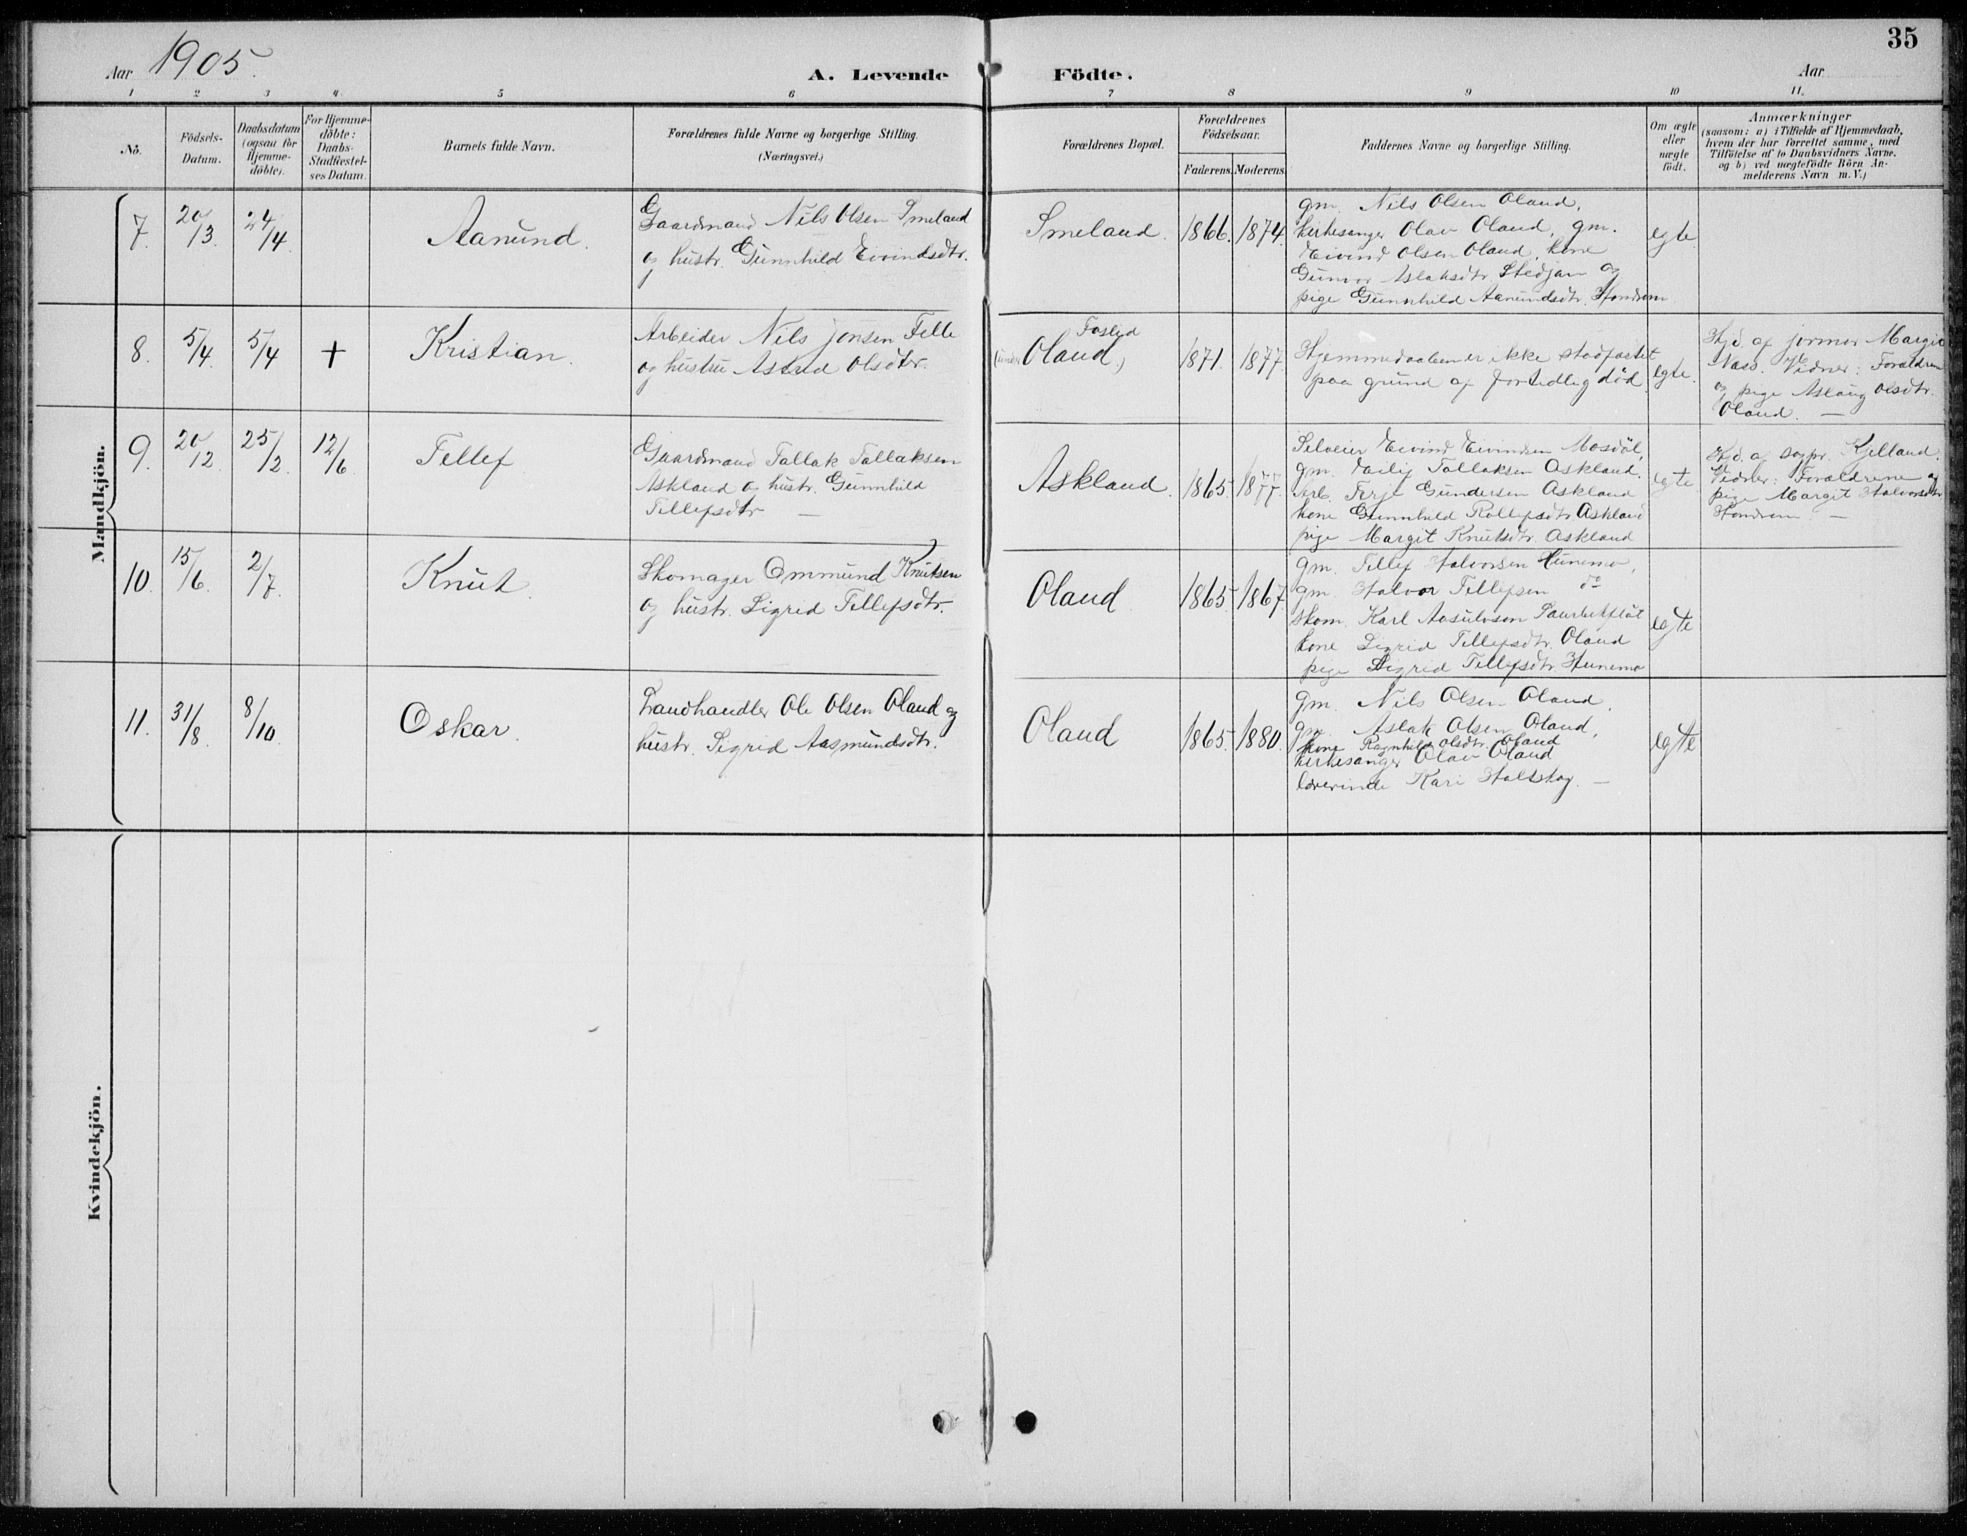 35
Aar 1905.
A. Levende Födte.
Aar
1 2 3 4 5 6 7 8 9 10 11.
No.
Födsels-
Datum.
Daabsdatum
(ogsaa for
Hjemme-
döbte).
For Hjemme-
döbte:
Daabs-
Stadfæstel-
ses Datum.
Barnets fulde Navn.
Forældrenes fulde Navne og borgerlige Stilling.
(Næringsvei.)
Forældrenes Bopæl.
Forældrenes
Födselsaar.
Faderens. Moderens.
Faddernes Navne og borgerlige Stilling.
Om ægte
eller
uægte
födt.
Anmærkninger
(saasom: a) i Tilfælde af Hjemmedaab,
hvem der har forrettet samme, med
Tilföielse af to Daabsvidners Navne.
og b) ved uægtefödte Börn An-
melderens Navn m. V.)
Mandkjön.
7. 20/3 24/4. Aanund.
Gaardmand Nils Olsen Smeland
og hustr. Gunnhild Eivindsdtr.
Smeland. 1866. 1874.
gm. Nils Olsen Oland,
kirkesanger Olav Oland, gm.
Eivind Olsen Oland, kone
Gunvor Aslaksdtr. Stedjan og
pige Gunnhild Aanundsdtr.
egte
8. 5/4. 5/4 + Kristian.
Arbeider Nils Jonsen Felle
og hustru Astrid Olsdtr.
Foslid
(under Oland.) 1871. 1877
Hjemmedaaben er ikke stadfæstet
paa grund af fortidlig død.
egte.
Hjd af jormor Margit
Næss. Vidner: Forældrene
og pige Aslaug Olsdtr.
Oland. —
9. 20/12 25/2 12/6 Tellef
Gaardmand Tallak Tallaksen
Askland og hustr. Gunnhild
Tellefsdtr —
Askland. 1865 1877.
Selveier Eivind Eivindsen Mosdöl,
gm. Tallaksen Askland.
Arb. Terje Gundersen Askland
kone Gunnhild Rollefsdtr. Askland
pige Margit Knutsdtr. Askland
egte
Hjd. af sogpr. Kjelland.
Vidner: Forældrene og
pige Margit Halvorsdtr.
—
10. 15/6. 2/7. Knut.
Skomager Ommund Knutsen
og hustr. Sigrid Tellefsdtr.
Oland. 1865 1867
gm. Tellef Halvorsen Hunemo,
gm. Halvor Tellefsen do
skom. Karl Aasulvson
kone Sigrid Tellefsdtr. Oland
pige Sigrid Tellefsdtr. Hunemo
egte
11. 31/8. 8/10 Oskar.
Landhandler Ole Olsen Oland og
hustr. Sigrid Aasmundsdtr.
Oland 1865 1880.
gm. Nils Olsen Oland,
gm. Aslak Olsen Oland,
kone Ragnhild Olsdtr. Oland
kirkesanger Olav Oland
lærerinde Kari Haltskog. —
egte
Kvindekjön.